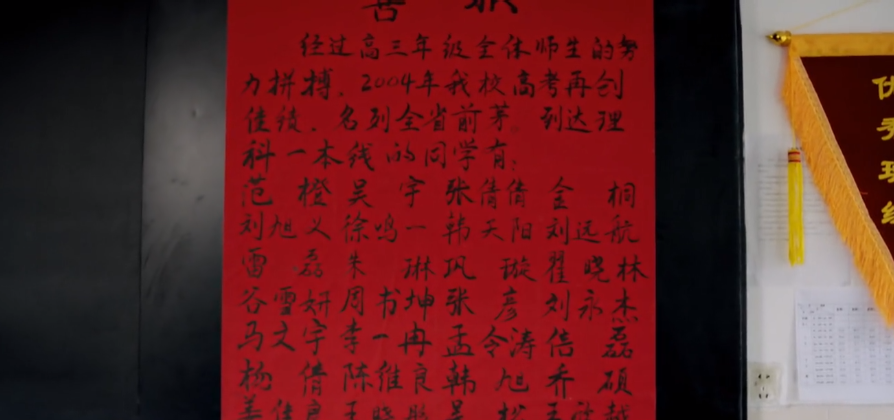 喜报
经过高三年级全体师生的努
力拼搏，2004年我校高考再创
佳绩，名列全省前茅。到达理
科一本线的同学有：
范橙 吴宇 张倩倩 金桐
刘旭义 徐鸣一 韩天阳 刘远航
雷磊 朱琳 巩璇 翟晓林
谷雪妍 周书坤 张彦 刘永杰
马文宇 李一冉 孟令涛 磊
杨倩 陈维良 韩旭 乔硕
优秀班级